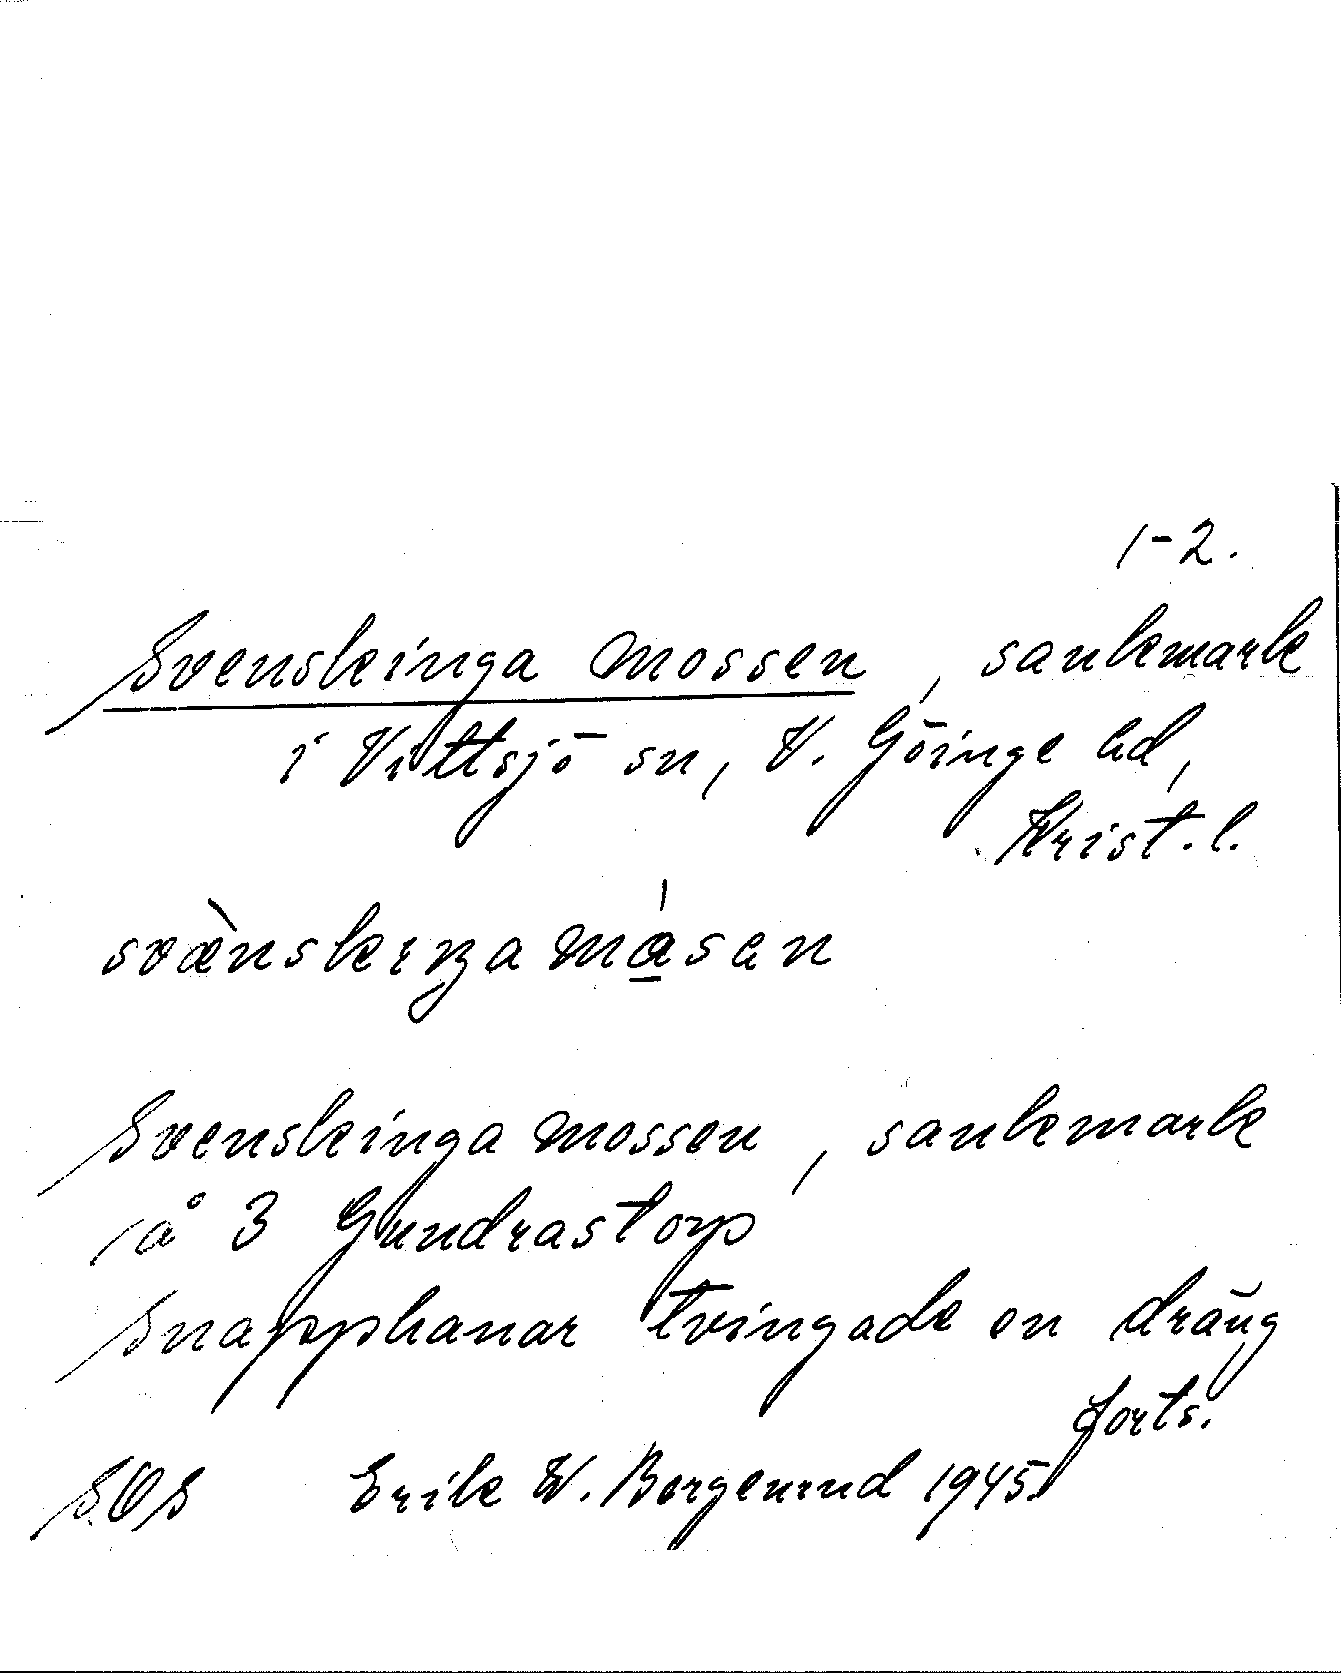 1-2.
Svenskinga mossen, sankmark
i Vittsjö sn, V. Göinge hd,
Krist. l.
Svenskinga mossen, sankmark
å 3 Gundrastorp
Snapphanar tvingade en dräng
forts.
SOS Erik W. Bergenrud 1945.